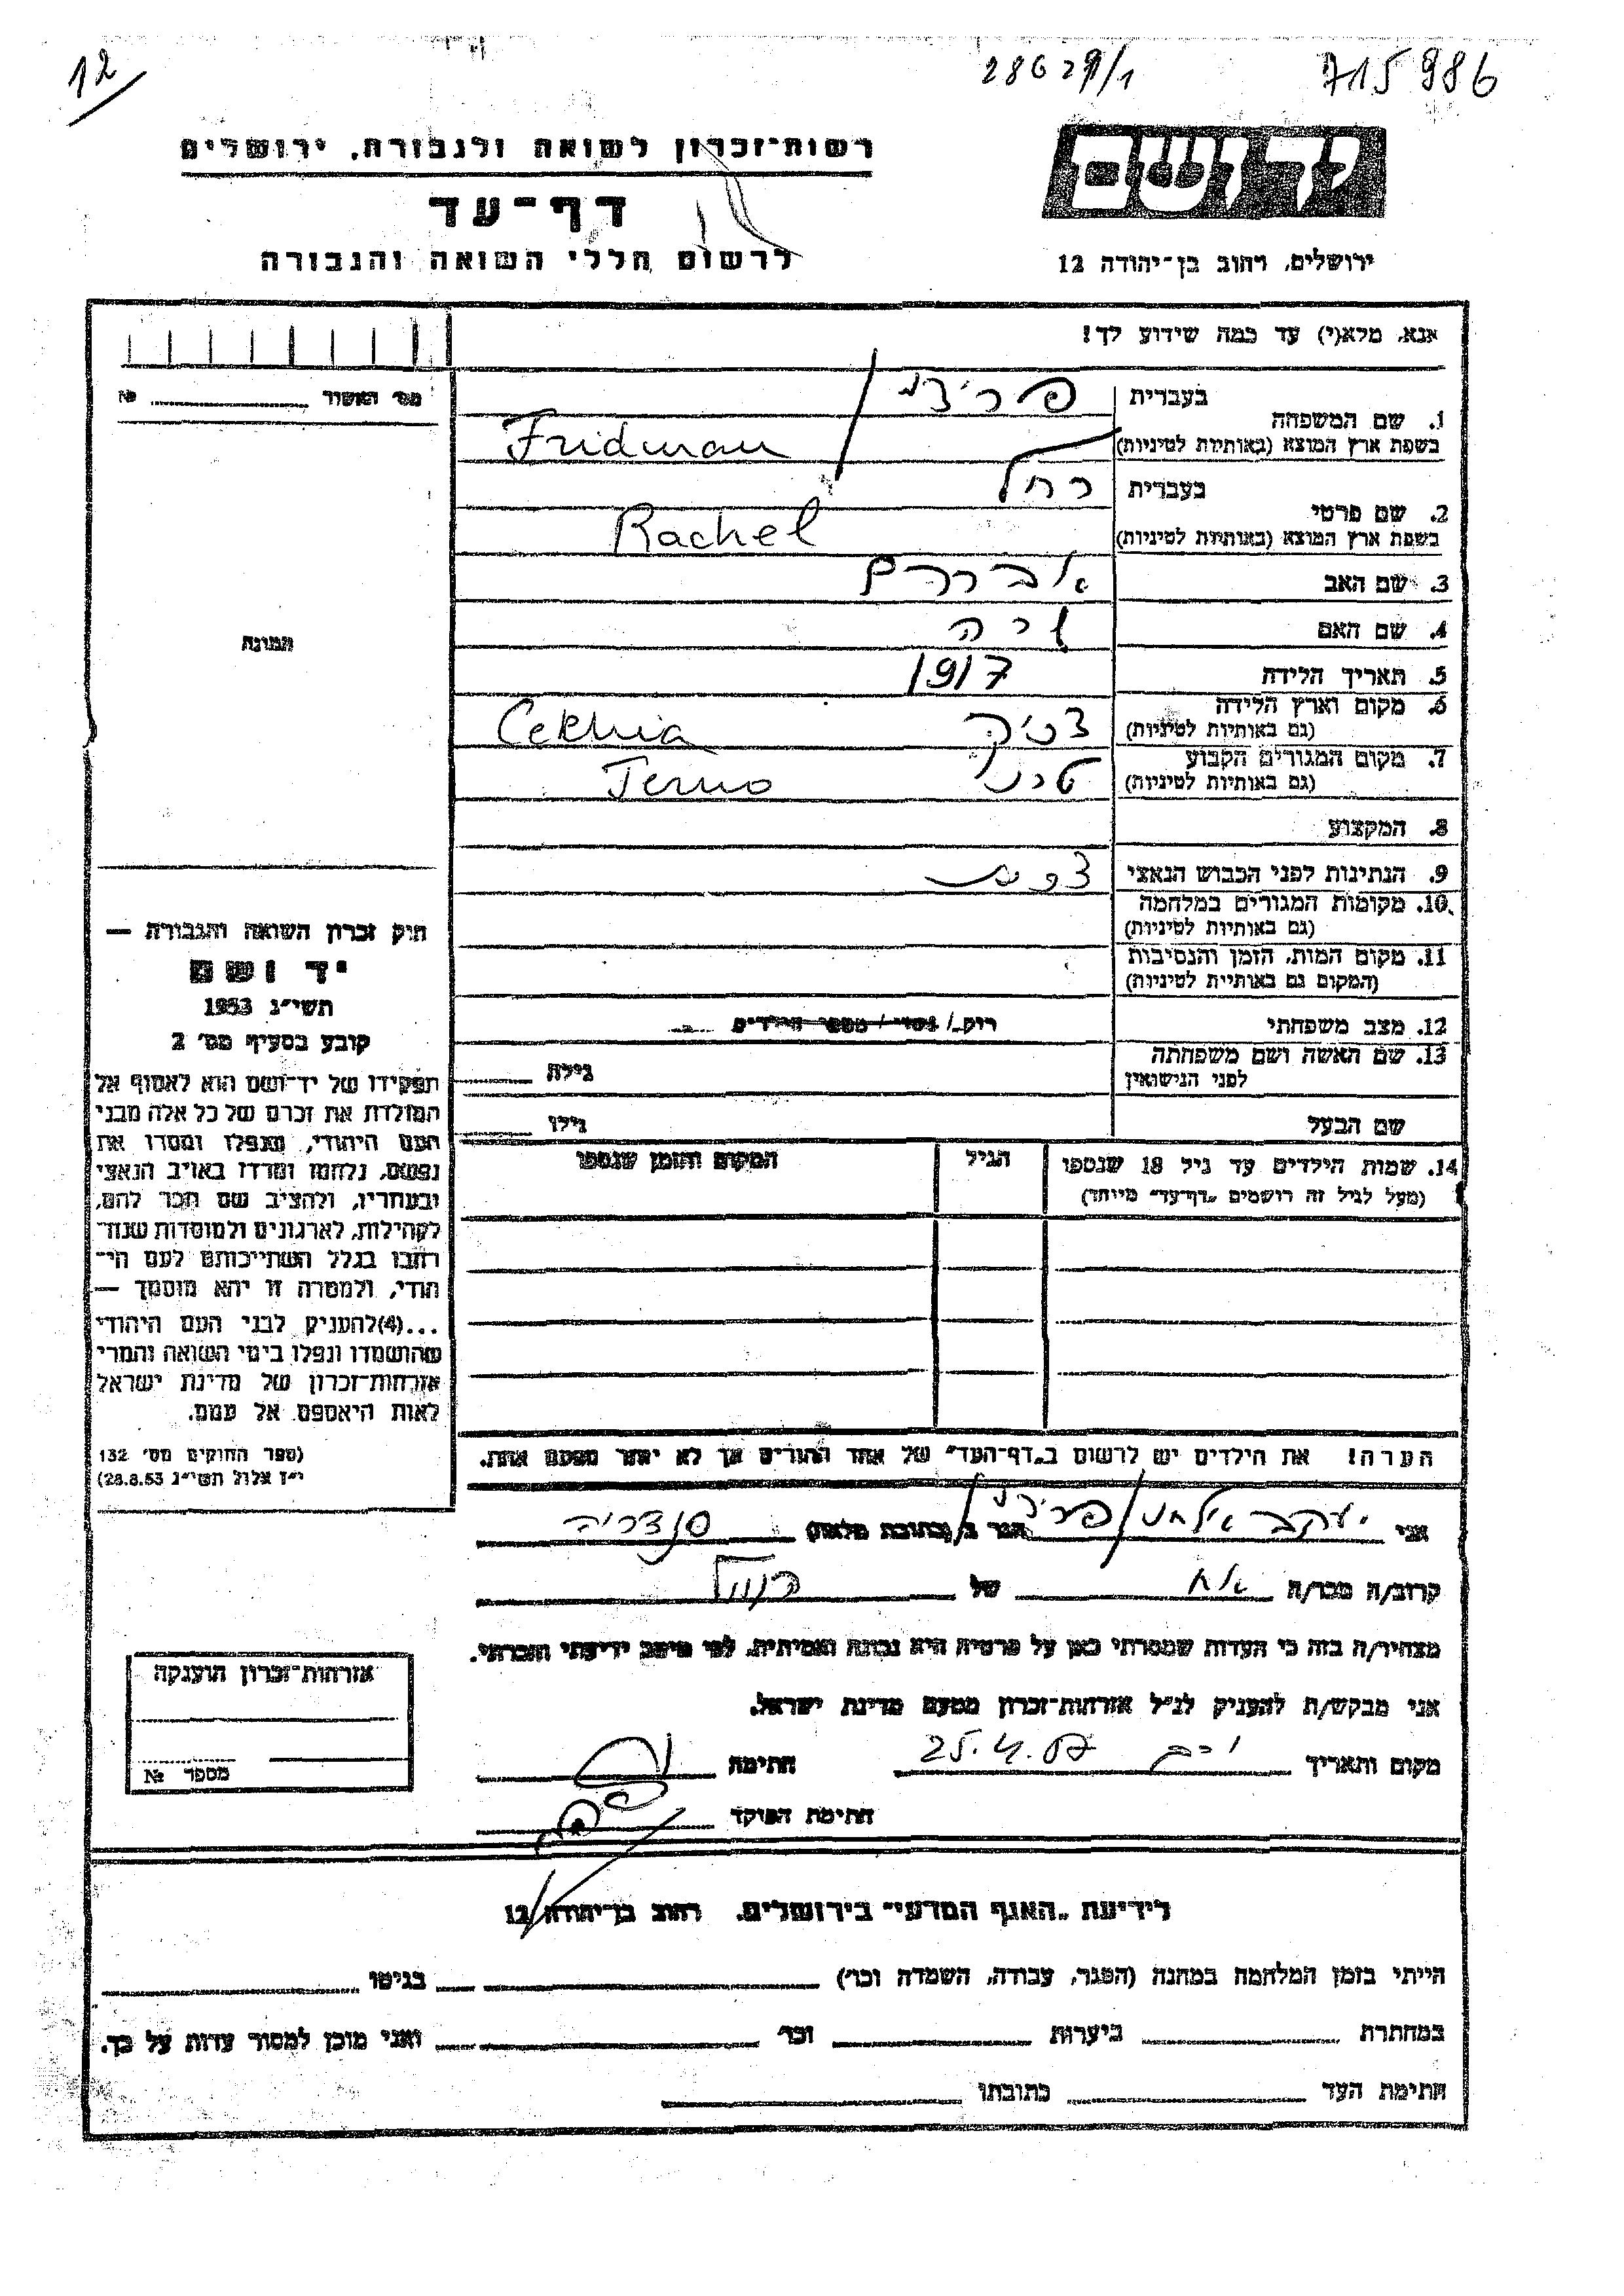 12
28629/1
715986
רשות-זכרון לשואה ולגבורה, ירושלים
דף-עד
לרשום חללי השואה והגבורה
ידושם
ירושלים, רחוב בן-יהודה 12
אנא, מלא(י) עד כמה שידוע לך!
מס' האשור № 
1. שם המשפחה
בעברית
בשפת ארץ המוצא (באותיות לטיניות) Fridman
2. שם פרטי
בעברית רחל
בשפת ארץ המוצא (באותיות לטיניות) Rachel
3. שם האב אברהם
4. שם האם שרה
5. תאריך הלידה 1917
6. מקום וארץ הלידה
(גם באותיות לטיניות) Cekhia
7. מקום המגורים הקבוע
(גם באותיות לטיניות)
8. המקצוע
9. הנתינות לפני הכבוש הנאצי
10. מקומות המגורים במלחמה
(גם באותיות לטיניות)
11. מקום המות, הזמן והנסיבות
(המקום גם באותיות לטיניות)
12. מצב משפחתי רוק/ נשוי/ מספר הילדים
13. שם האשה ושם משפחתה
לפני הנישואין
גילה
שם הבעל
גילו
14. שמות הילדים עד גיל 18 שנספו
(מעל לגיל זה רושמים "דף-עד" מיוחד)
הגיל
המקום והזמן שנספו
הערה! את הילדים יש לרשום ב"דף-העד" של אחד ההורים אך לא יותר מפעם אחת.
תמונה
חוק זכרון השואה והגבורה —
יד ושם
תשי"ג 1953
קובע בסעיף מס' 2
תפקידו של יד-ושם הוא לאסוף אל
המולדת את זכרם של כל אלה מבני
העם היהודי, שנפלו ומסרו את
נפשם, נלחמו ומרדו באויב הנאצי
ובעוזריו, ולהציב שם וזכר להם,
לקהילות, לארגונים ולמוסדות שנח-
רבו בגלל השתייכותם לעם הי-
הודי, ולמטרה זו יהא מוסמך —
...(4) להעניק לבני העם היהודי
שהושמדו ונפלו בימי השואה והמרי
אזרחות-זכרון של מדינת ישראל
לאות היאספם אל עמם.
(ספר החוקים מס' 132
י"ז אלול תשי"ג 28.8.53)
אני יעקב הגר ב (כתובת מלאה) סנדריה
קרוב/ה מכר/ה אח של רחל
מצהיר/ה בזה כי העדות שמסרתי כאן על פרטיה היא נכונה ואמיתית, לפי מיטב ידיעתי והכרתי.
אני מבקש/ת להעניק לנ"ל אזרחות-זכרון מטעם מדינת ישראל.
מקום ותאריך חתימה
חתימת הפוקד
אזרחות-זכרון הוענקה
מספר №
לידיעת "האגף המדעי" בירושלים, רחוב בן-יהודה 12
הייתי בזמן המלחמה במחנה (הסגר, עבודה, השמדה וכו') בגיטו
במחתרת ביערות וכו' ואני מוכן למסור עדות על כך.
חתימת העד כתובתו